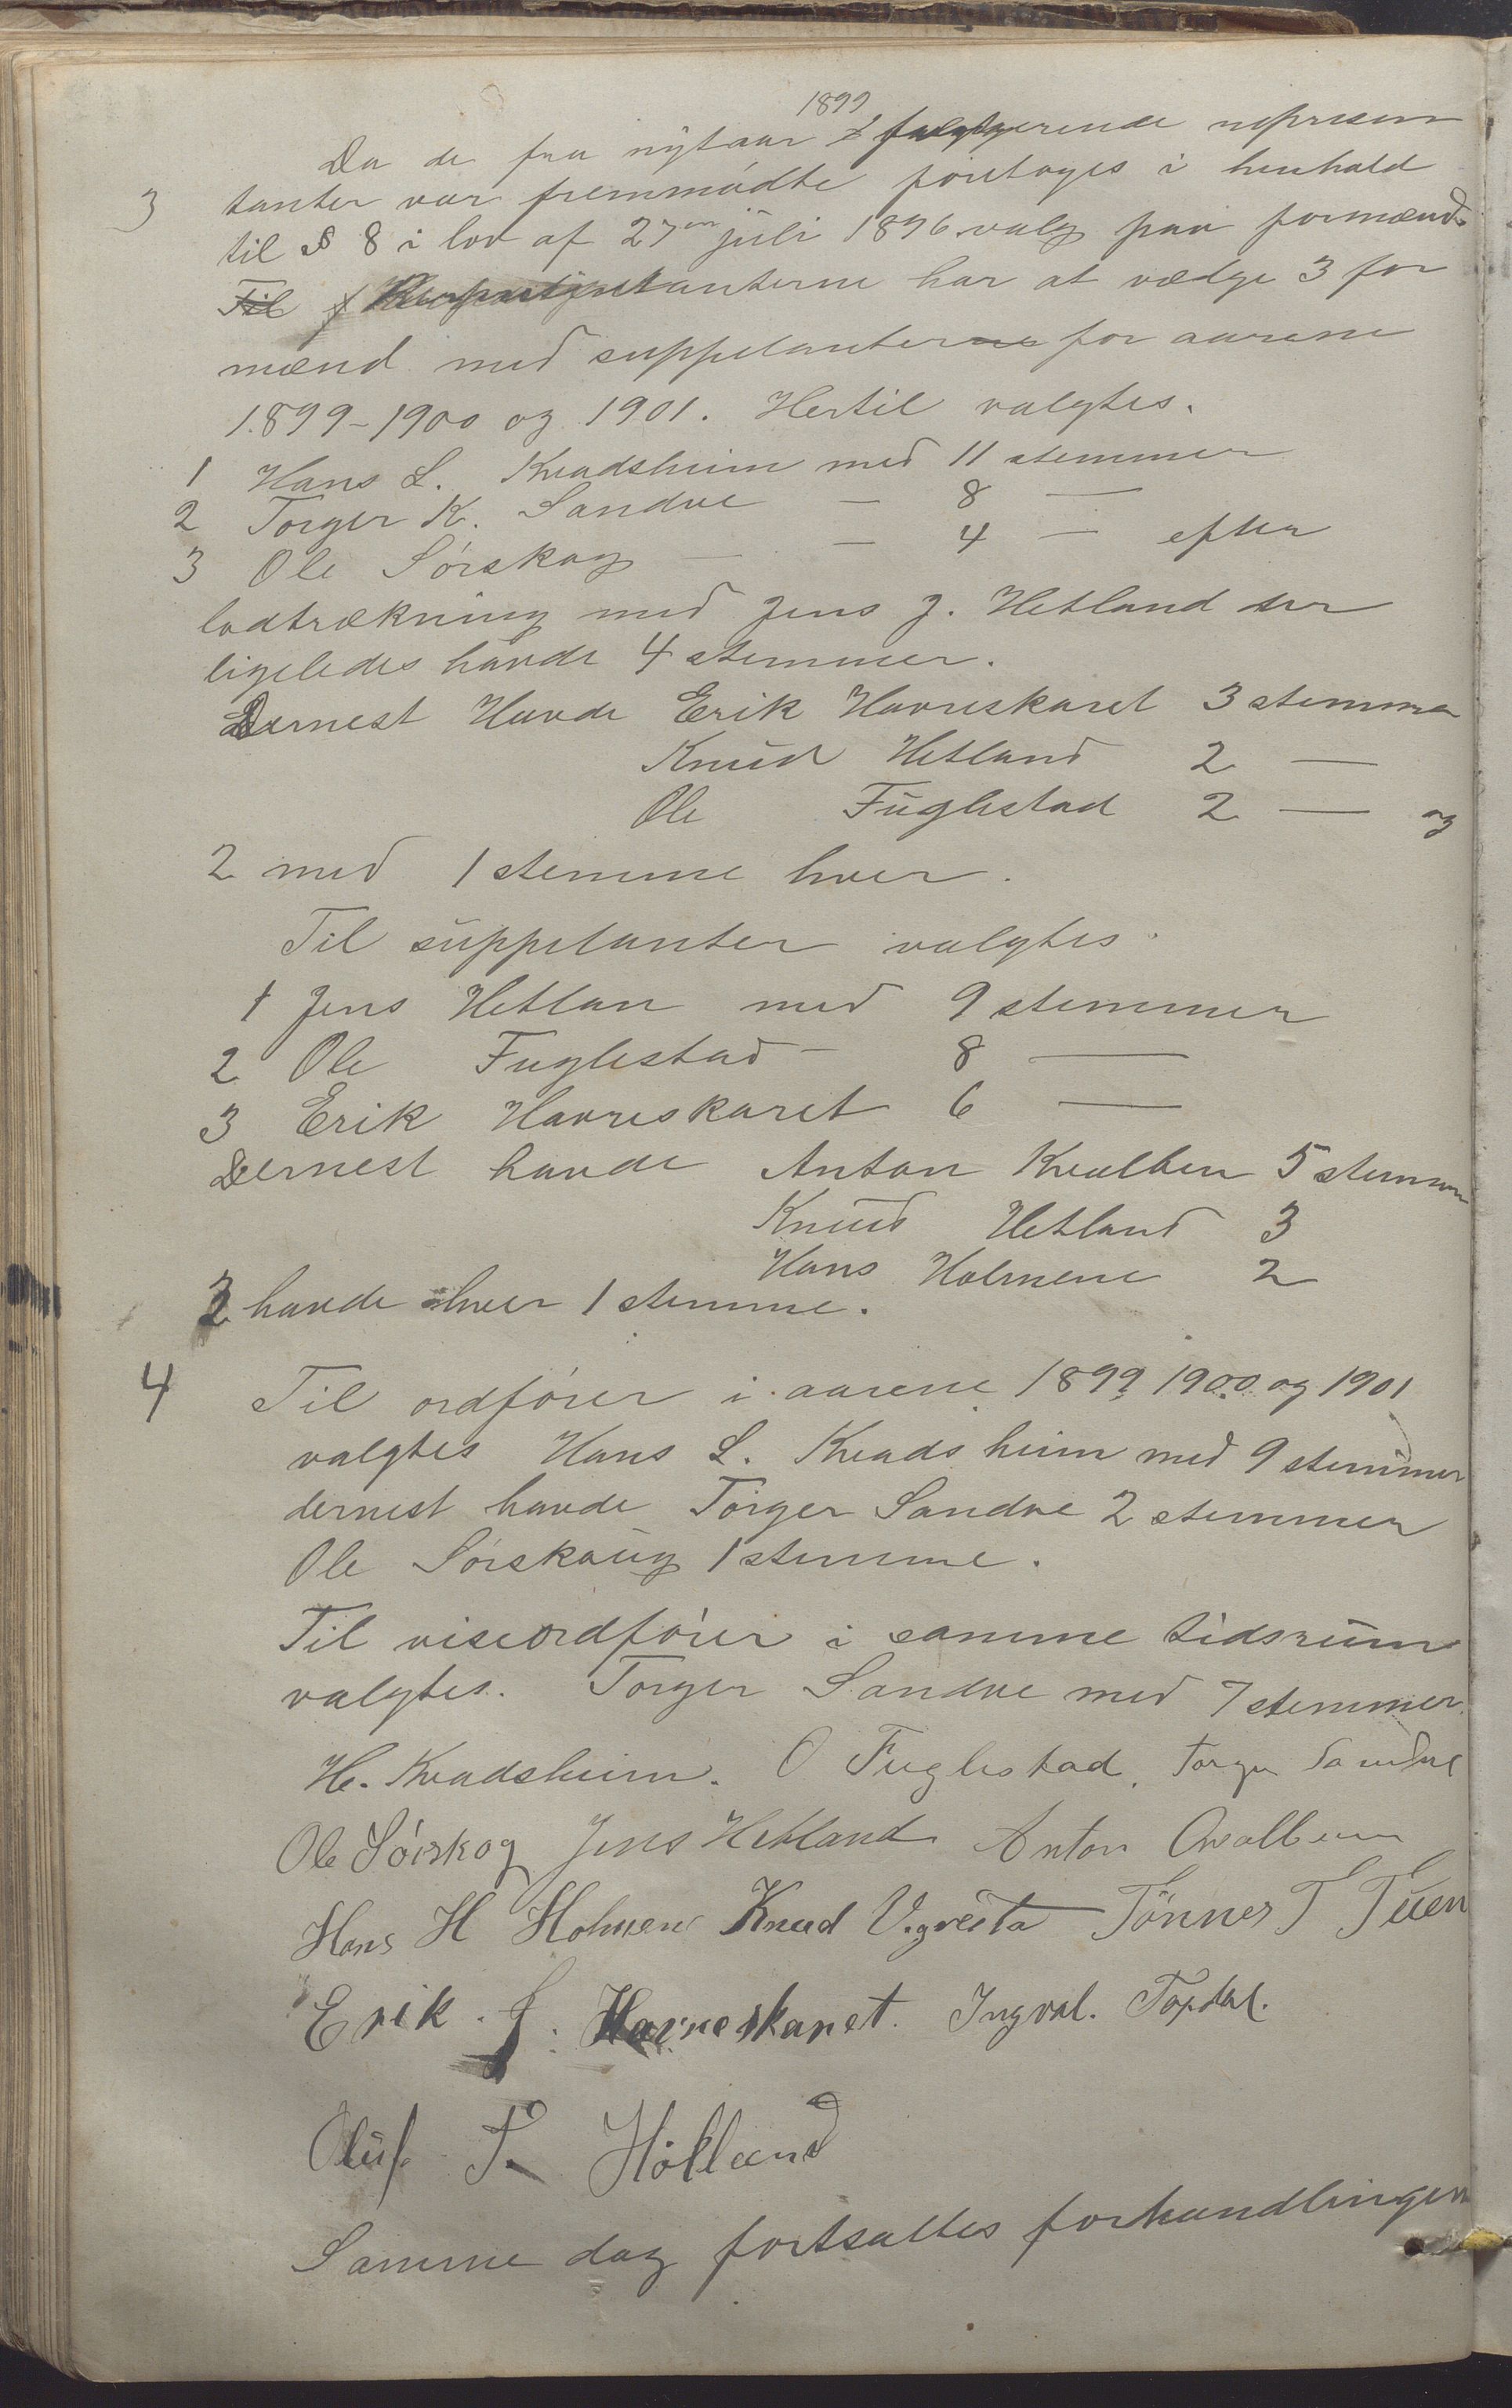 1899
Da de fra nytaar fungerende represen
3 tanter var fremmødte foretoges i henhold
til § 8 i lov af 27 juli 1896 valg paa formænd.
Til Repræsentanterne har at vælge 3 for
mænd med suppelanterne for aarene
1899-1900 og 1901. Hertil valgtes.
1 Hans L. Kvadsheim med 11 stemmer
2 Torger K. Sandve — 8 —
3 Ole Sørskog — — 4 — efter
lodtrækning med Jens J. Hetland der
ligeledes havde 4 stemmer.
Dernest Havde Erik Havreskaret 3 stemmer
Knud Hetland 2 —
Ole Fuglestad 2 — og
2 med 1 stemme hver.
Til suppelanter valgtes.
1 Jens Hetlan med 9 stemmer
2 Ole Fuglestad — 8 —
3 Erik Havreskaret 6 —
Dernest havde Anton Kvalben 5 stemmer
Knud Hetland 3
Hans Holmene 2
havde hver 1 stemme.
4 Til ordfører i aarene 1899, 1900 og 1901
valgtes Hans L. Kvadsheim med 9 stemmer
dernest havde Torger Sandve 2 stemmer
Ole Sørskoug 1 stemme.
Til viseordfører i samme tidsrum
valgtes. Torger Sandve med 7 stemmer.
H. Kvadsheim. O Fuglestad, Torger Sandve
Ole Sørskog Jens Hetland Anton Qvalben
Hans H Holmene Knud Vigresta Tönnes T Tuen
Erik. J. Havreskaret. Ingval. Topdal.
Oluf T. Hölland
Samme dag fortsattes forhandlingen